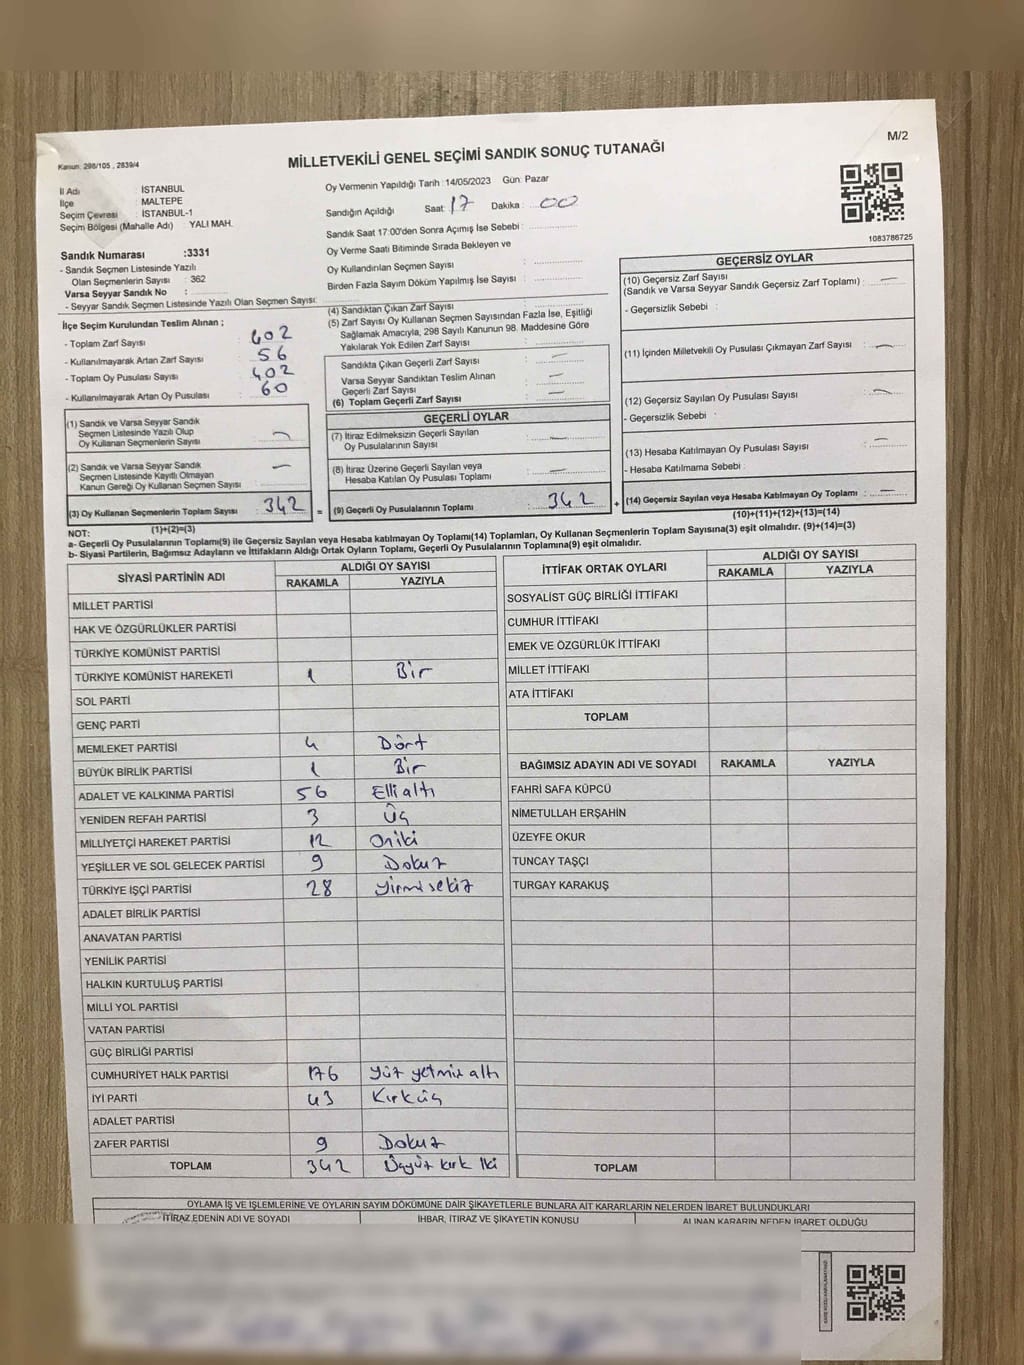 M/2
Kanun: 298/105 , 2839/4
MİLLETVEKİLİ GENEL SEÇİMİ SANDIK SONUÇ TUTANAĞI
İl Adı : İSTANBUL
İlçe : MALTEPE
Seçim Çevresi : İSTANBUL-1
Seçim Bölgesi (Mahalle Adı) YALI MAH.
Oy Vermenin Yapıldığı Tarih : 14/05/2023 Gün: Pazar
Sandığın Açıldığı Saat: 17 Dakika : 00
Sandık Saat 17:00'den Sonra Açımış İse Sebebi :
Oy Verme Saati Bitiminde Sırada Bekleyen ve
Oy Kullandırılan Seçmen Sayısı :
Birden Fazla Sayım Döküm Yapılmış İse Sayısı :
1083786725
Sandık Numarası :3331
- Sandık Seçmen Listesinde Yazılı
Olan Seçmenlerin Sayısı : 362
Varsa Seyyar Sandık No :
- Seyyar Sandık Seçmen Listesinde Yazılı Olan Seçmen Sayısı:
İlçe Seçim Kurulundan Teslim Alınan ;
- Toplam Zarf Sayısı : 402
- Kullanılmayarak Artan Zarf Sayısı : 56
- Toplam Oy Pusulası Sayısı : 402
- Kullanılmayarak Artan Oy Pusulası : 60
(1) Sandık ve Varsa Seyyar Sandık
Seçmen Listesinde Yazılı Olup
Oy Kullanan Seçmenlerin Sayısı : —
(2) Sandık ve Varsa Seyyar Sandık
Seçmen Listesinde Kayıtlı Olmayan
Kanun Gereği Oy Kullanan Seçmen Sayısı : —
(3) Oy Kullanan Seçmenlerin Toplam Sayısı : 342
(1)+(2)=(3)
(4) Sandıktan Çıkan Zarf Sayısı :
(5) Zarf Sayısı Oy Kullanan Seçmen Sayısından Fazla İse, Eşitliği
Sağlamak Amacıyla, 298 Sayılı Kanunun 98. Maddesine Göre
Yakılarak Yok Edilen Zarf Sayısı :
Sandıkta Çıkan Geçerli Zarf Sayısı : —
Varsa Seyyar Sandıktan Teslim Alınan
Geçerli Zarf Sayısı : —
(6) Toplam Geçerli Zarf Sayısı : —
GEÇERLİ OYLAR
(7) İtiraz Edilmeksizin Geçerli Sayılan
Oy Pusulalarının Sayısı : —
(8) İtiraz Üzerine Geçerli Sayılan veya
Hesaba Katılan Oy Pusulası Toplamı : —
= (9) Geçerli Oy Pusulalarının Toplamı : 342
GEÇERSİZ OYLAR
(10) Geçersiz Zarf Sayısı
(Sandık ve Varsa Seyyar Sandık Geçersiz Zarf Toplamı) : —
- Geçersizlik Sebebi :
(11) İçinden Milletvekili Oy Pusulası Çıkmayan Zarf Sayısı : —
(12) Geçersiz Sayılan Oy Pusulası Sayısı : —
- Geçersizlik Sebebi :
(13) Hesaba Katılmayan Oy Pusulası Sayısı : —
- Hesaba Katılmama Sebebi :
+ (14) Geçersiz Sayılan veya Hesaba Katılmayan Oy Toplamı : —
(10)+(11)+(12)+(13)=(14)
NOT:
a- Geçerli Oy Pusulalarının Toplamı(9) ile Geçersiz Sayılan veya Hesaba katılmayan Oy Toplamı(14) Toplamları, Oy Kullanan Seçmenlerin Toplam Sayısına(3) eşit olmalıdır. (9)+(14)=(3)
b- Siyasi Partilerin, Bağımsız Adayların ve İttifakların Aldığı Ortak Oyların Toplamı, Geçerli Oy Pusulalarının Toplamına(9) eşit olmalıdır.
SİYASİ PARTİNİN ADI ALDIĞI OY SAYISI
RAKAMLA YAZIYLA
MİLLET PARTİSİ
HAK VE ÖZGÜRLÜKLER PARTİSİ
TÜRKİYE KOMÜNİST PARTİSİ
TÜRKİYE KOMÜNİST HAREKETİ 1 Bir
SOL PARTİ
GENÇ PARTİ
MEMLEKET PARTİSİ 4 Dört
BÜYÜK BİRLİK PARTİSİ 1 Bir
ADALET VE KALKINMA PARTİSİ 56 Elli altı
YENİDEN REFAH PARTİSİ 3 Üç
MİLLİYETÇİ HAREKET PARTİSİ 12 Oniki
YEŞİLLER VE SOL GELECEK PARTİSİ 9 Dokuz
TÜRKİYE İŞÇİ PARTİSİ 28 yirmi sekiz
ADALET BİRLİK PARTİSİ
ANAVATAN PARTİSİ
YENİLİK PARTİSİ
HALKIN KURTULUŞ PARTİSİ
MİLLİ YOL PARTİSİ
VATAN PARTİSİ
GÜÇ BİRLİĞİ PARTİSİ
CUMHURİYET HALK PARTİSİ 176 yüz yetmiş altı
İYİ PARTİ 43 Kırküç
ADALET PARTİSİ
ZAFER PARTİSİ 9 Dokuz
TOPLAM 342 Üçyüz kırk iki
İTTİFAK ORTAK OYLARI ALDIĞI OY SAYISI
RAKAMLA YAZIYLA
SOSYALİST GÜÇ BİRLİĞİ İTTİFAKI
CUMHUR İTTİFAKI
EMEK VE ÖZGÜRLÜK İTTİFAKI
MİLLET İTTİFAKI
ATA İTTİFAKI
TOPLAM
BAĞIMSIZ ADAYIN ADI VE SOYADI RAKAMLA YAZIYLA
FAHRİ SAFA KÜPCÜ
NİMETULLAH ERŞAHİN
ÜZEYFE OKUR
TUNCAY TAŞÇI
TURGAY KARAKUŞ
TOPLAM
OYLAMA İŞ VE İŞLEMLERİNE VE OYLARIN SAYIM DÖKÜMÜNE DAİR ŞİKAYETLERLE BUNLARA AİT KARARLARIN NELERDEN İBARET BULUNDUKLARI
İTİRAZ EDENİN ADI VE SOYADI İHBAR, İTİRAZ VE ŞİKAYETİN KONUSU ALINAN KARARIN NEDEN İBARET OLDUĞU